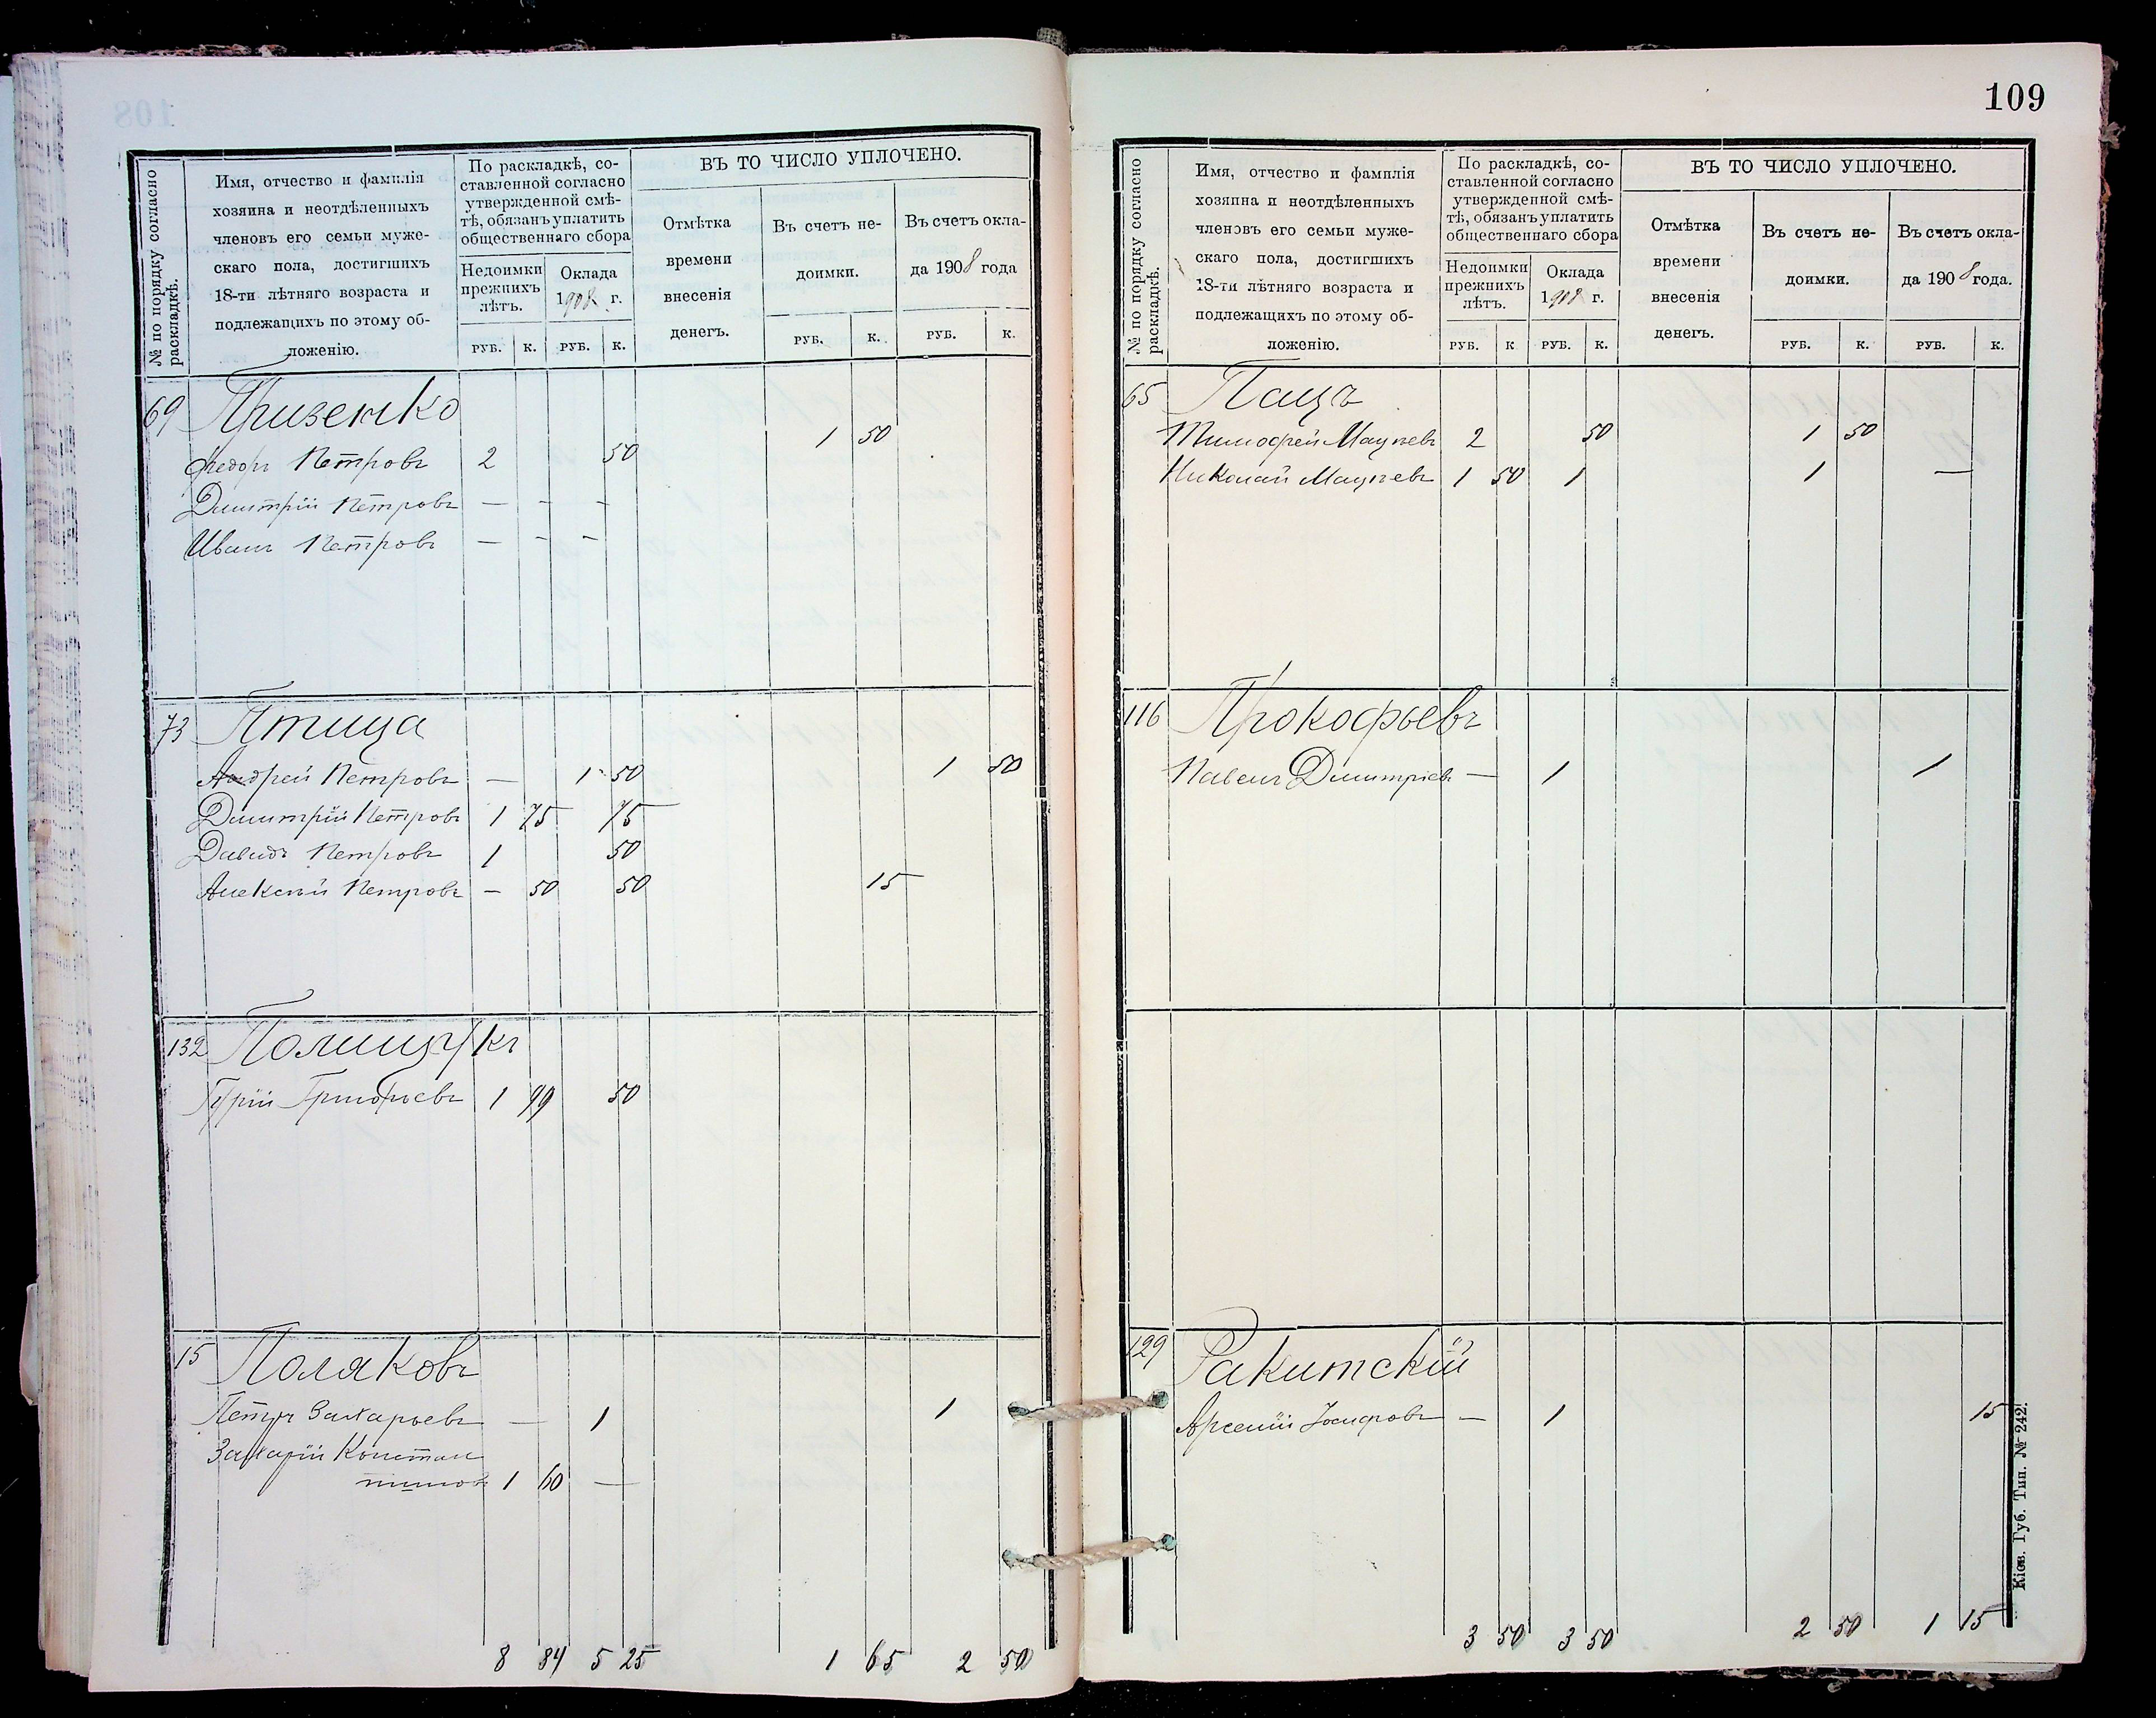 № по порядку согласно раскладкѣ.
Имя, отчество и фамилія
хозяина и неотдѣленныхъ
членовъ его семьи муже-
скаго пола, достигшихъ
18-ти лѣтняго возраста и
подлежащихъ по этому об-
ложенію.
По раскладкѣ, со-
ставленной согласно
утвержденной смѣ-
тѣ, обязанъ уплатить
общественнаго сбора
Недоимки
прежнихъ
лѣтъ.
Оклада
1908 г.
РУБ. К. РУБ. К.
ВЪ ТО ЧИСЛО УПЛОЧЕНО.
Отмѣтка
времени
внесенія
денегъ.
Въ счетъ не-
доимки.
РУБ. К.
Въ счетъ окла-
да 1908 года
РУБ. К.
69 Призенко
Федоръ Петровъ 2 50 1 50
Дмитрій Петровъ — - -
Иванъ Петровъ — - -
73 Птица
Андрей Петровъ — 1 50 1 50
Дмитрій Петровъ 1 75 75
Давидъ Петровъ 1 50
Алексѣй Петровъ - 50 50 15
132 Полищукъ
Гурій Григорьевъ 1 99 50
15 Поляковъ
Петръ Захарьевъ — 1 1
Захарій Констан
тиновъ 1 60 —
8 84 5 25 1 65 2 50
109
№ по порядку согласно раскладкѣ.
Имя, отчество и фамилія
хозяина и неотдѣленныхъ
членовъ его семьи муже-
скаго пола, достигшихъ
18-ти лѣтняго возраста и
подлежащихъ по этому об-
ложенію.
По раскладкѣ, со-
ставленной согласно
утвержденной смѣ-
тѣ, обязанъ уплатить
общественнаго сбора
Недоимки
прежнихъ
лѣтъ.
Оклада
1908 г.
РУБ. К РУБ. К.
ВЪ ТО ЧИСЛО УПЛОЧЕНО.
Отмѣтка
времени
внесенія
денегъ.
Въ счетъ не-
доимки.
РУБ. К.
Въ счетъ окла-
да 1908 года.
РУБ. К.
65 Пацъ
Тимофей 2 50 1 50
Николай 1 50 1 1 —
116 Прокофьевъ
Павелъ Дмитріевъ — 1 1
129 Ракитскій
Арсеній Іосифовъ — 1 15
3 50 3 50 2 50 1 15
Кіев. Губ. Тип. № 242.